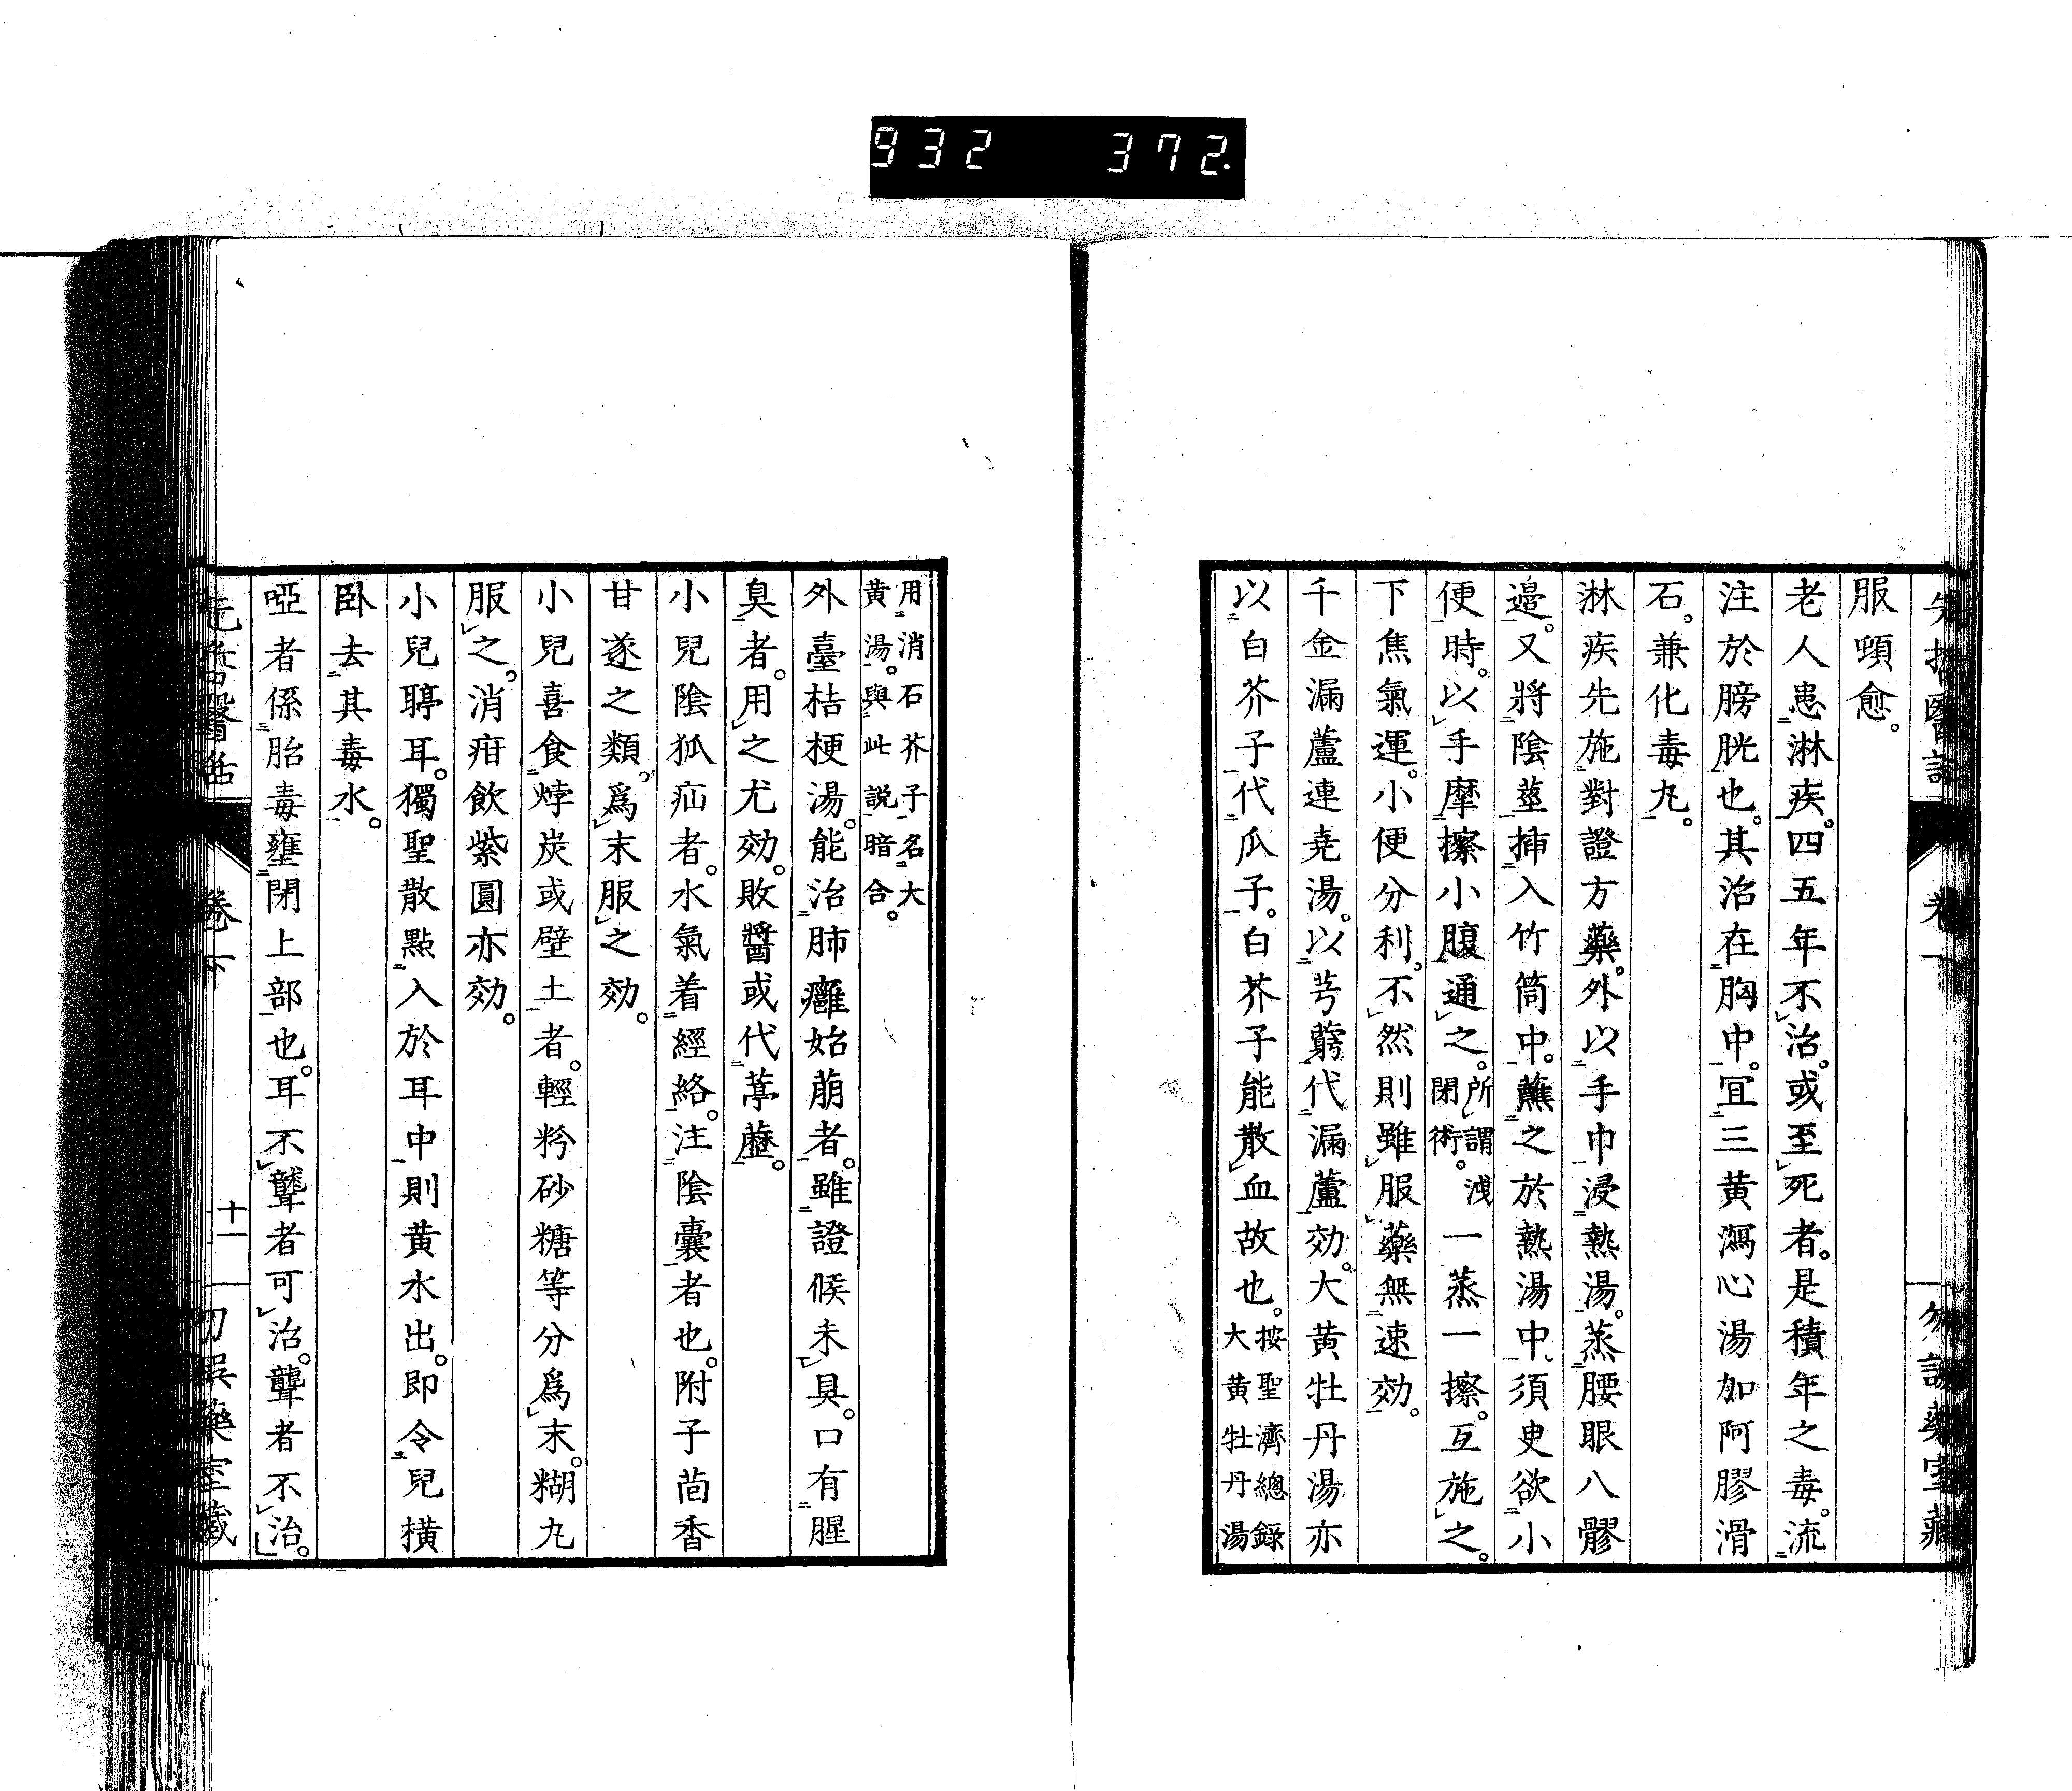 932 372
服頓愈。
老人患淋疾。四五年不治。或至死者。是積年之毒。流
注於膀胱也。其治在胸中。宜三黄瀉心湯加阿膠滑
石。兼化毒丸。
淋疾先施對證方藥。外以手巾浸熱湯。蒸腰眼八髎
邊。又將陰莖挿入竹筒中。蘸之於熱湯中。須臾欲小
便時。以手摩擦小腹通之。所謂洩閉術。一蒸一擦。互施之。
下焦氣運。小便分利。不然則雖服藥無速効。
千金漏蘆連尭湯。以芎藭代漏蘆効。大黄牡丹湯亦
以白芥子代瓜子。白芥子能散血故也。按聖濟總録大黄牡丹湯
用消石芥子名大黄湯。與此説暗合。
外臺桔梗湯。能治肺癰始萠者。雖證候未具。口有腥
臭者。用之尤効。敗醬或代葶藶。
小兒陰狐疝者。水氣着經絡。注陰嚢者也。附子茴香
甘遂之類。爲末服之効。
小兒喜食烰炭或壁土者。輕粉砂糖等分爲末。糊丸
服之。消疳飲紫圓亦効。
小兒聤耳。獨聖散點入於耳中則黄水出。即令兒横
臥去其毒水。
啞者係胎毒壅閉上部也。耳不聾者可治。聾者不治。
卷下
十一